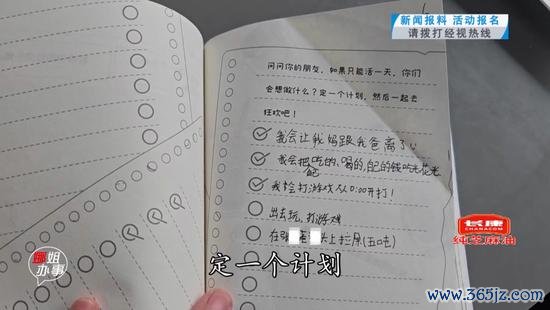 新闻报料 活动报名
请拨打经视热线
问问你的朋友，如果只能活一天，你们
会想做什么？定一个计划，然后一起去
狂欢吧！
我会让我妈跟我爸离了
我会把吃的，喝的，自己的钱吃光花光
我会打游戏从0:00开打！
出去玩，打游戏
头上拉尿(五吨)
长康
CHANACOM
纯芝麻油
姐
办事
定一个计划
www.365jz.com